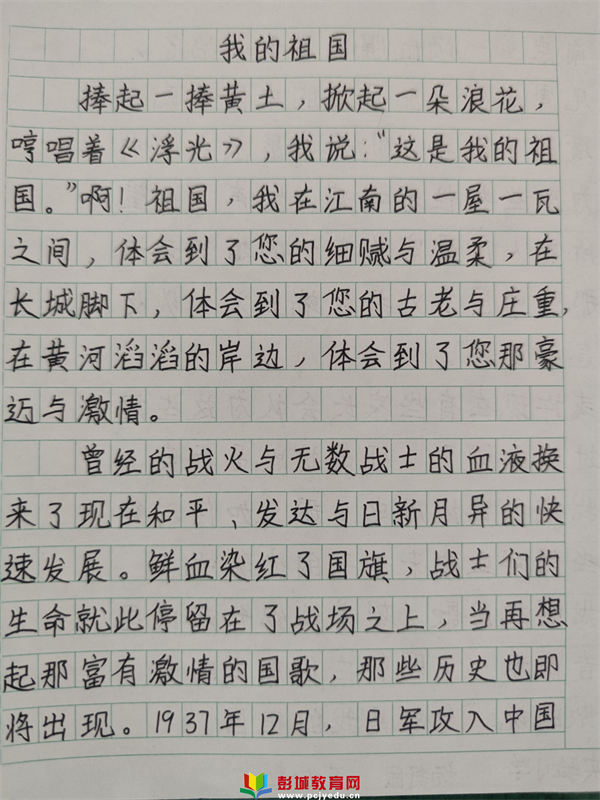 我的祖国
捧起一捧黄土，掀起一朵浪花，
哼唱着《浮光》，我说：“这是我的祖
国。”啊！祖国，我在江南的一屋一瓦
之间，体会到了您的细腻与温柔，在
长城脚下，体会到了您的古老与庄重，
在黄河滔滔的岸边，体会到了您那豪
迈与激情。
曾经的战火与无数战士的血液换
来了现在和平、发达与日新月异的快
速发展。鲜血染红了国旗，战士们的
生命就此停留在了战场之上，当再想
起那富有激情的国歌，那些历史也即
将出现。1937年12月，日军攻入中国
彭城教育网
www.pcjyedu.cn